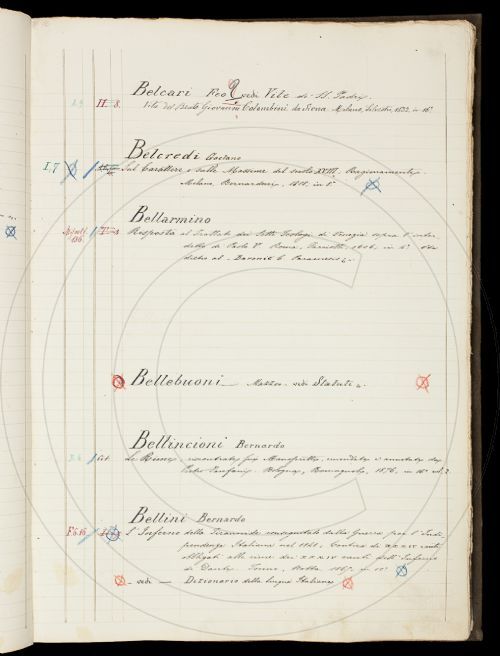 Belcari Feo vedi Vite di SS. Padri.
H. 8. Vita del Beato Giovanni Colombini da Siena. Milano, Silvestri, 1832, in 16°
Belcredi Gaetano
I.7 Sul Carattere e sulle Massime del secolo XVIII. Ragionamento.
Milano, Bernardoni, in 8°
Bellarmino
Risposta al Trattato dei Sette Teologi di Venezia sopra l'inter
detto di Paolo V. Roma, 1606, in 4°
dietro al Baronio C.
Bellebuoni Matteo. vedi Statuti
Bellincioni Bernardo
Le Rime, riscontrate sui Manoscritti, emendate e annotate da
Pietro Fanfani. Bologna, Romagnoli, 1876, in 16° vol. 2.
Bellini Bernardo
F6.16 L'Inferno della Tirannide conseguitato dalla Guerra per l'Indi
pendenza Italiana nel 1848. Cantica di XXXIV canti
obbligati alle rime dei XXXIV canti dell'Inferno
di Dante. Torino, 1865, in 12°
- vedi - Dizionario della lingua Italiana